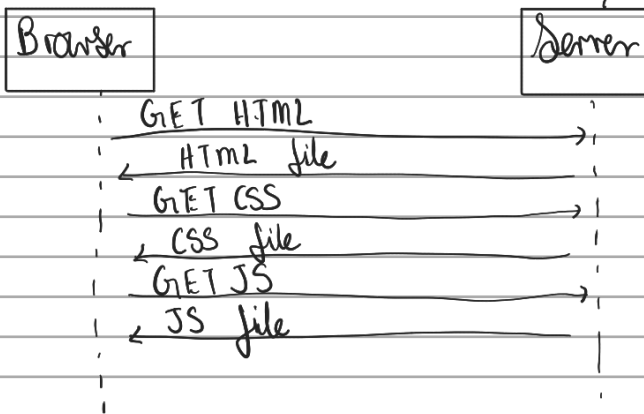 Browser
Server
GET HTML
HTML file
GET CSS
CSS file
GET JS
JS file